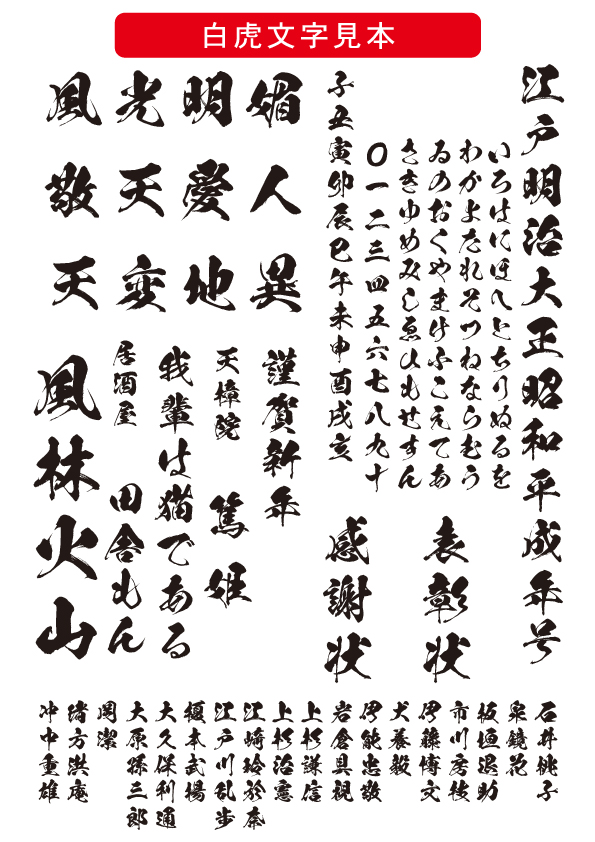 白虎文字見本
江戸明治大正昭和平成年号
いろはにほへとちりぬるを
わかよたれそつねならむう
ゐのおくやまけふこえてあ
さきゆめみしゑひもせすん
〇一二三四五六七八九十
子丑寅卯辰巳午未申酉戌亥
表彰状
感謝状
媚人異
明愛地
光天変
風敬天
謹賀新年
天樟院 篤姫
我輩は猫である
居酒屋 田舎もん
風林火山
石井桃子
泉鏡花
板垣退助
市川房枝
伊藤博文
犬養毅
伊能忠敬
岩倉具視
上杉謙信
上杉治憲
江崎玲於奈
江戸川乱歩
榎本武揚
大久保利通
大原孫三郎
岡潔
緒方洪庵
沖中重雄